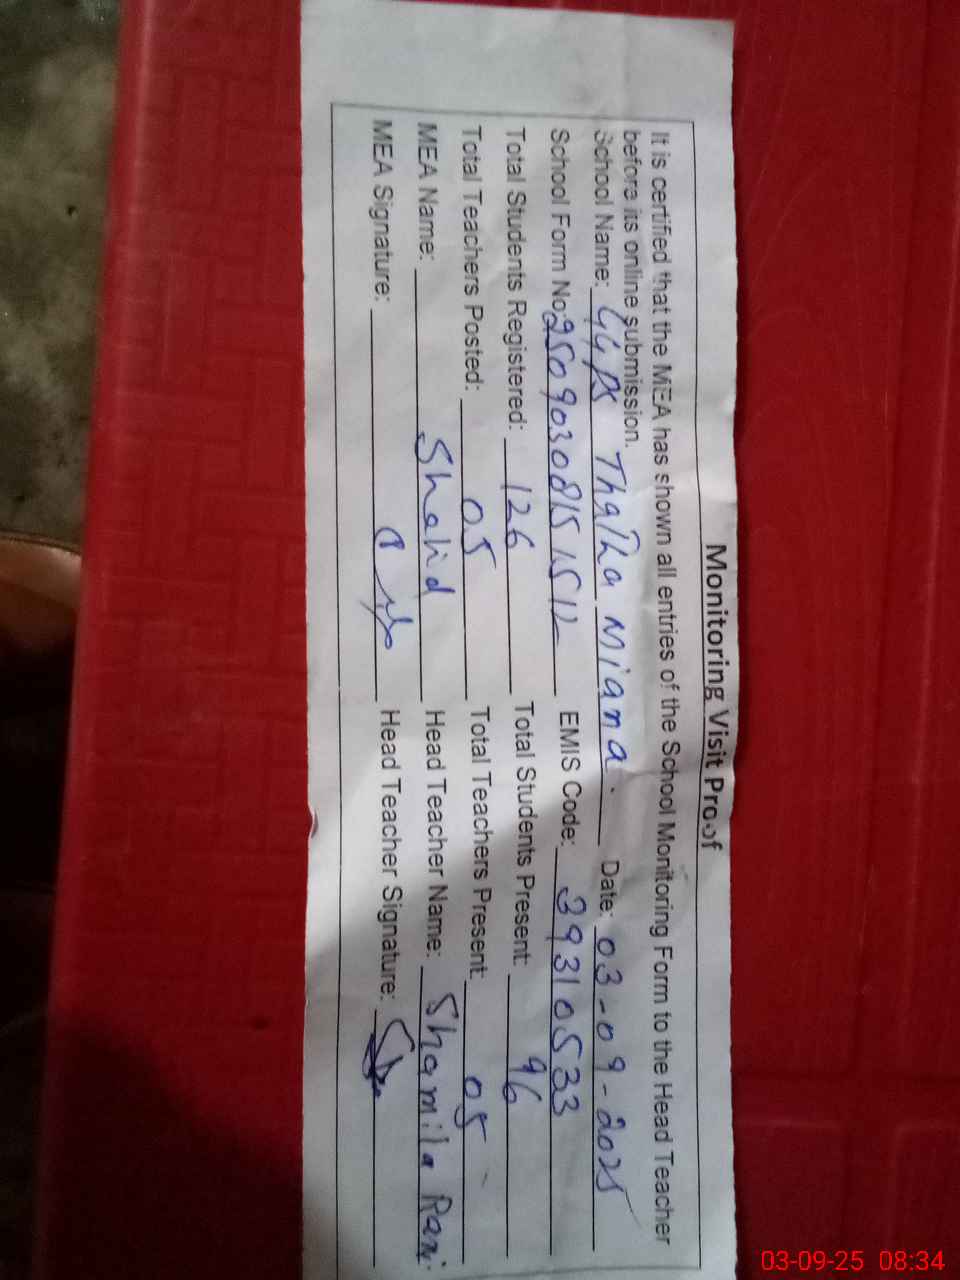 Monitoring Visit Proof
It is certified that the MEA has shown all entries of the School Monitoring Form to the Head Teacher
before its online submission.
School Name: GGPS Thatha Miana. Date: 03-09-2025
School Form No: 25090308151512 EMIS Code: 39310533
Total Students Registered: 126 Total Students Present: 96
Total Teachers Posted: 05 Total Teachers Present: 05
MEA Name: Shahid Head Teacher Name: Shamila Rani
MEA Signature: Head Teacher Signature:
03-09-25 08:34